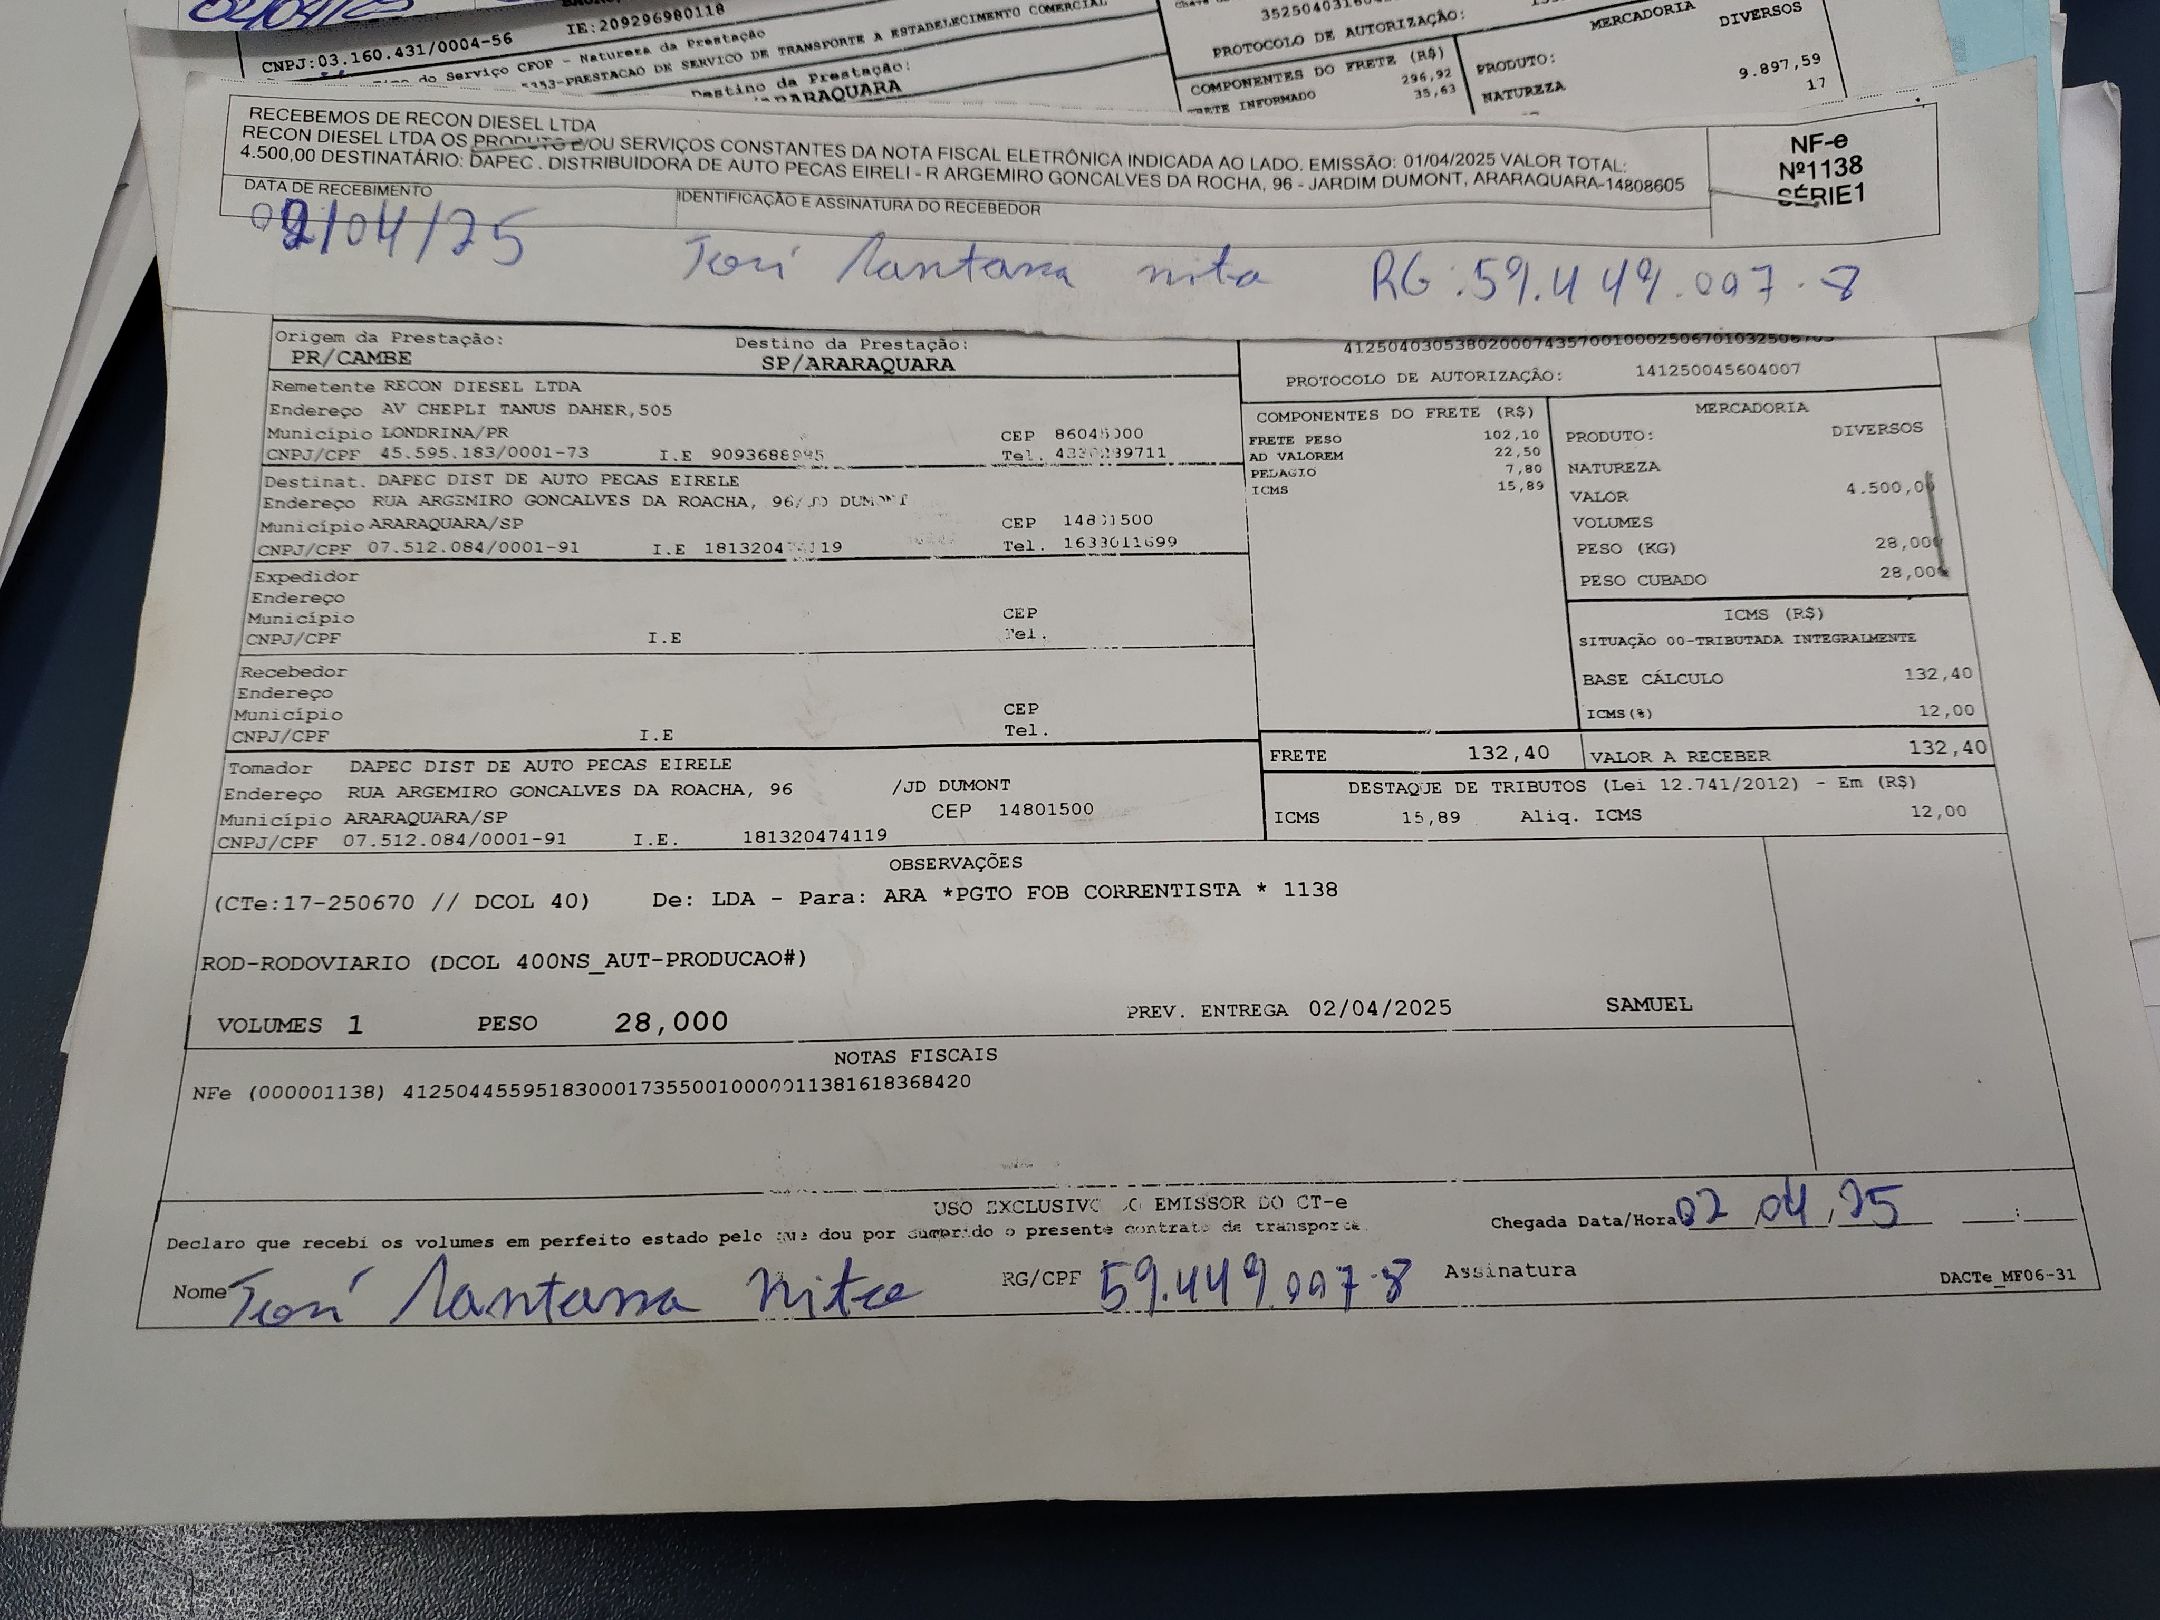 CNPJ:03.160.431/0004-56 IE:209296980118
do Serviço CFOP - Natureza da Prestação
5353-PRESTACAO DE SERVICO DE TRANSPORTE A ESTABELECIMENTO COMERCIAL
Destino da Prestação:
ARARAQUARA
PROTOCOLO DE AUTORIZAÇÃO:
COMPONENTES DO FRETE (R$)
296,92
FRETE INFORMADO 35,63
MERCADORIA
PRODUTO: DIVERSOS
NATUREZA 9.897,59
17
RECEBEMOS DE RECON DIESEL LTDA
RECON DIESEL LTDA OS PRODUTO E/OU SERVIÇOS CONSTANTES DA NOTA FISCAL ELETRÔNICA INDICADA AO LADO. EMISSÃO: 01/04/2025 VALOR TOTAL:
4.500,00 DESTINATÁRIO: DAPEC . DISTRIBUIDORA DE AUTO PECAS EIRELI - R ARGEMIRO GONCALVES DA ROCHA, 96 - JARDIM DUMONT, ARARAQUARA-14808605
DATA DE RECEBIMENTO IDENTIFICAÇÃO E ASSINATURA DO RECEBEDOR
NF-e
Nº1138
SÉRIE1
02/04/25 Santana RG:59.449.007-8
Origem da Prestação: Destino da Prestação:
PR/CAMBE SP/ARARAQUARA
Remetente RECON DIESEL LTDA
Endereço AV CHEPLI TANUS DAHER,505
Município LONDRINA/PR CEP
CNPJ/CPF 45.595.183/0001-73 I.E Tel.
Destinat. DAPEC DIST DE AUTO PECAS EIRELE
Endereço RUA ARGEMIRO GONCALVES DA ROACHA, 96/JD DUMONT
Município ARARAQUARA/SP CEP 14801500
CNPJ/CPF 07.512.084/0001-91 I.E 181320474119 Tel. 1633011699
Expedidor
Endereço
Município CEP
CNPJ/CPF I.E Tel.
Recebedor
Endereço
Município CEP
CNPJ/CPF I.E Tel.
Tomador DAPEC DIST DE AUTO PECAS EIRELE
Endereço RUA ARGEMIRO GONCALVES DA ROACHA, 96 /JD DUMONT
Município ARARAQUARA/SP CEP 14801500
CNPJ/CPF 07.512.084/0001-91 I.E. 181320474119
PROTOCOLO DE AUTORIZAÇÃO: 141250045604007
COMPONENTES DO FRETE (R$)
FRETE PESO 102,10
AD VALOREM 22,50
PEDAGIO 7,80
ICMS 15,89
MERCADORIA
PRODUTO: DIVERSOS
NATUREZA
VALOR 4.500,00
VOLUMES
PESO (KG) 28,000
PESO CUBADO 28,000
ICMS (R$)
SITUAÇÃO 00-TRIBUTADA INTEGRALMENTE
BASE CÁLCULO 132,40
ICMS(%) 12,00
FRETE 132,40 VALOR A RECEBER 132,40
DESTAQUE DE TRIBUTOS (Lei 12.741/2012) - Em (R$)
ICMS 15,89 Aliq. ICMS 12,00
OBSERVAÇÕES
(CTe:17-250670 // DCOL 40) De: LDA - Para: ARA *PGTO FOB CORRENTISTA * 1138
ROD-RODOVIARIO (DCOL 400NS_AUT-PRODUCAO#)
VOLUMES 1 PESO 28,000 PREV. ENTREGA 02/04/2025 SAMUEL
NOTAS FISCAIS
NFe (000001138) 41250445595183000173550010000011381618368420
USO EXCLUSIVO DO EMISSOR DO CT-e
Declaro que recebi os volumes em perfeito estado pelo que dou por cumprido o presente contrato de transporte. Chegada Data/Hora 02 04 25 :
Nome Santana RG/CPF 59.449.007-8 Assinatura
DACTe_MF06-31